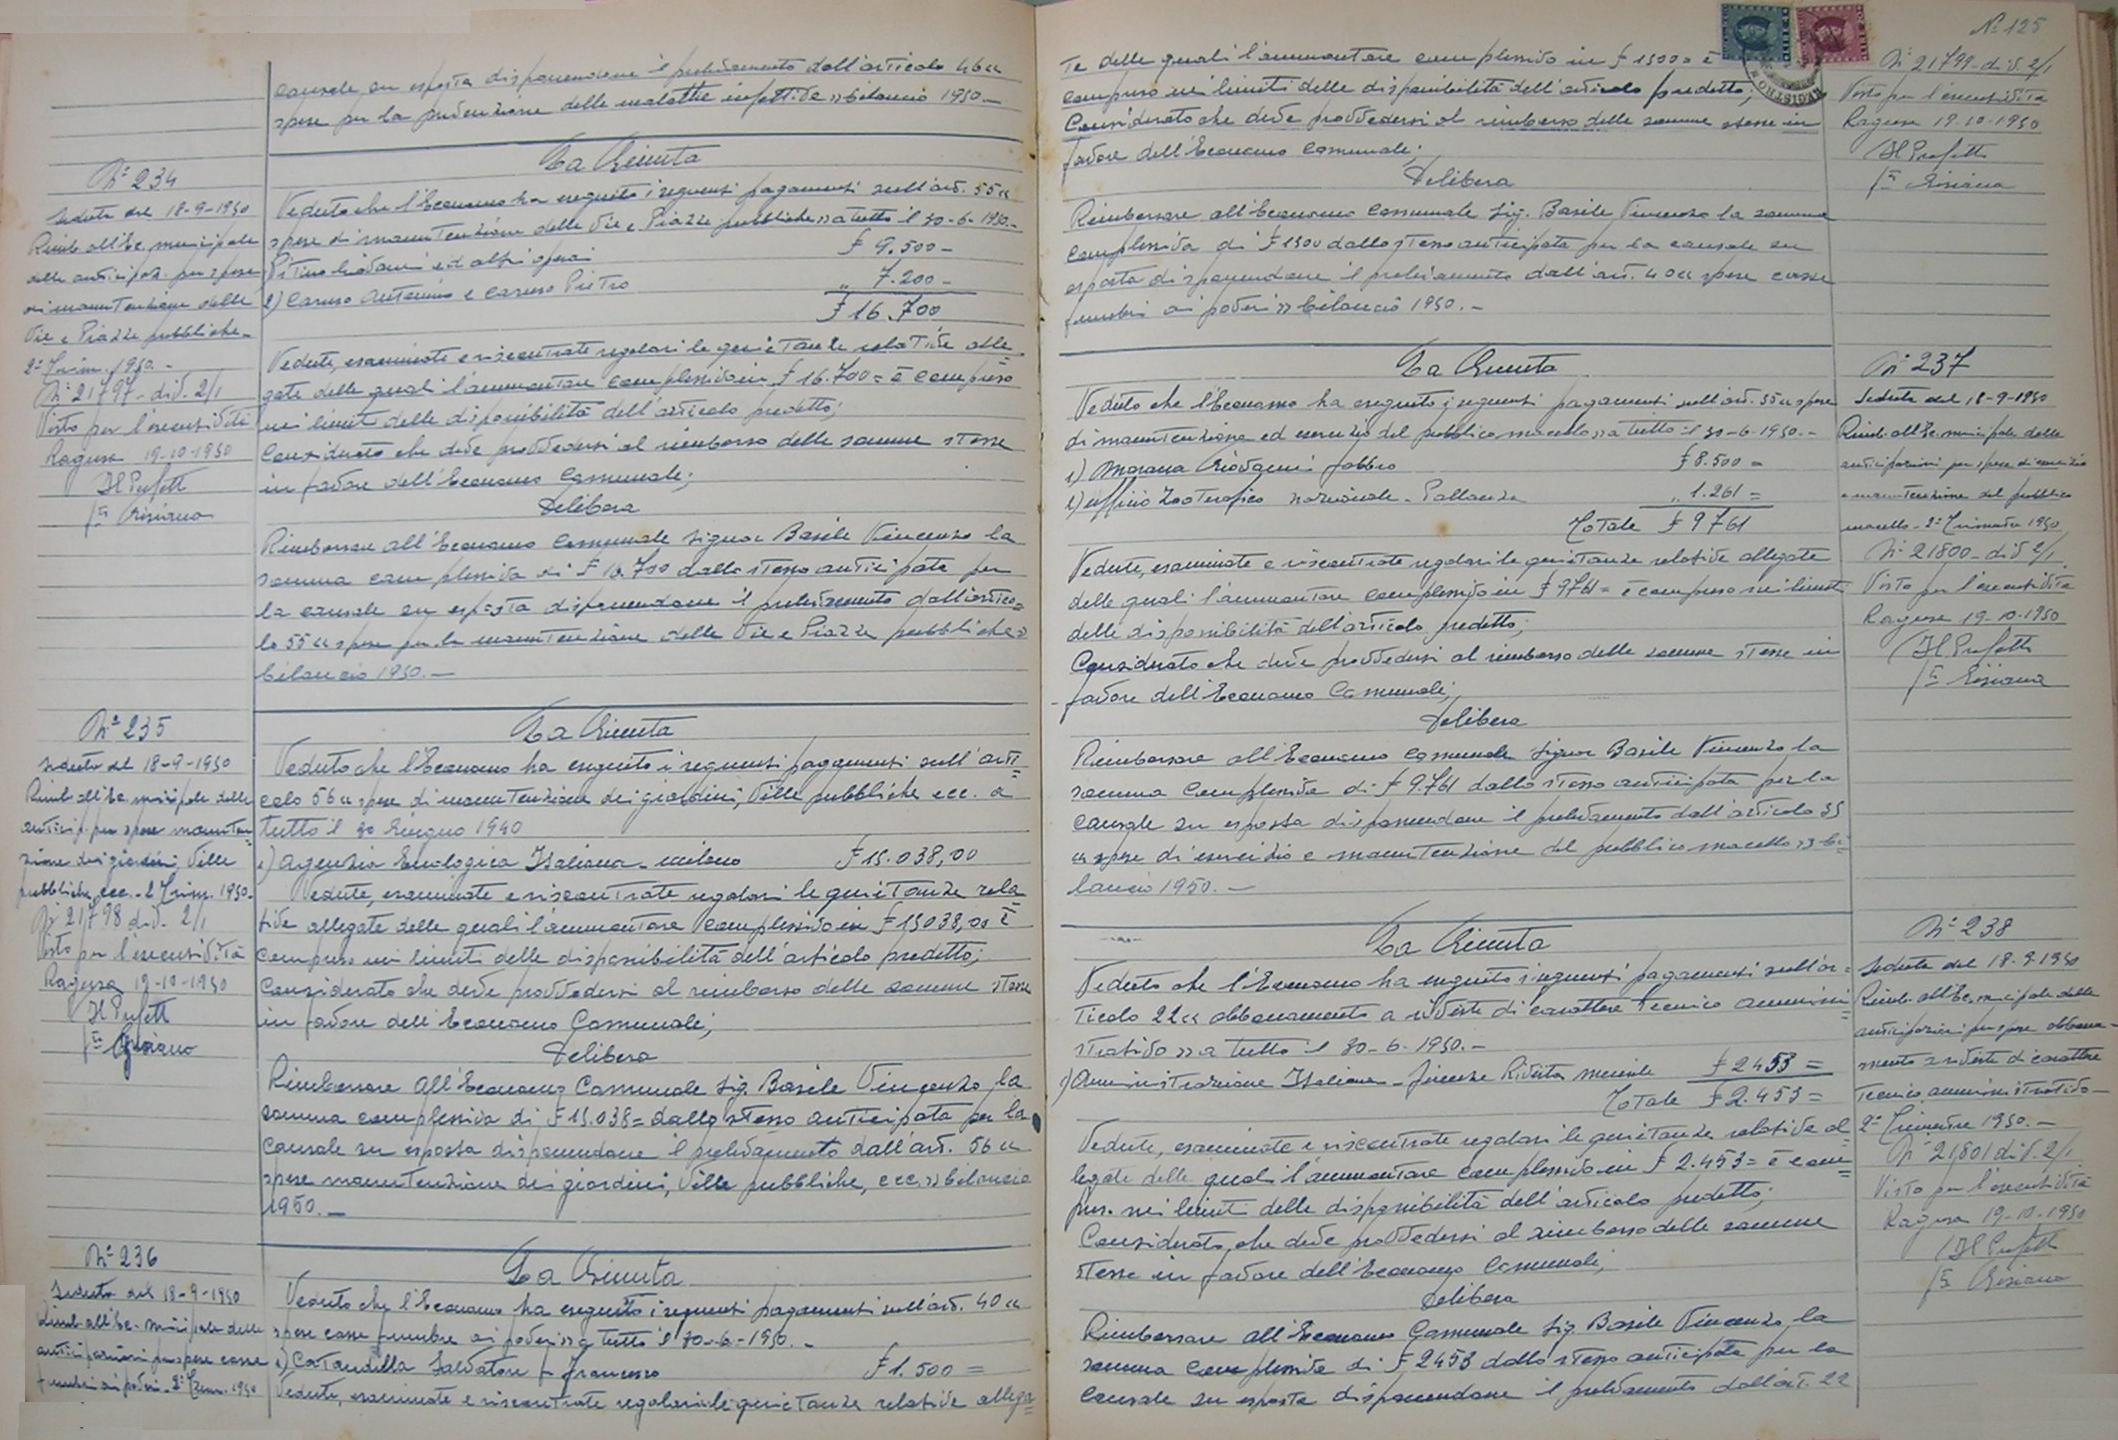 causale su esposta disponendone il prelevamento dall'articolo 46 "
spese per la prevenzione delle malattie infettive" bilancio 1950.-
N° 234
Seduta del 18-9-1950
Rimb. all'Ec. municipale
delle anticipaz. per spese
di manutenzione delle
Vie e Piazze pubbliche-
2° Trim. 1950.-
N° 21797-div. 2/1
Visto per l'esecutività
Ragusa 19-10-1950
Il Prefetto
La Giunta
Veduto che l'Economo ha eseguito i seguenti pagamenti sull'art. 55 "
spese di manutenzione delle Vie e Piazze pubbliche" a tutto il 30-6-1950.-
Giovanni ed altri operai £ 9.500-
2) Caruso Antonino e Caruso Pietro " 7.200-
£ 16.700
Vedute, esaminate e riscontrate regolari le quietanze relative alle=
gate delle quali l'ammontare complessivo in £ 16.700= è compreso
nei limiti delle disponibilità dell'articolo predetto;
Considerato che deve provvedersi al rimborso delle somme stesse
in favore dell'Economo Comunale;
Delibera
Rimborsare all'Economo Comunale Signor Basile Vincenzo la
somma complessiva di £ 16.700 dallo stesso anticipata per
la causale su esposta disponendone il prelevamento dall'artico=
lo 55 " spese per la manutenzione delle Vie e Piazze pubbliche"
bilancio 1950.-
N° 235
Seduta del 18-9-1950
Rimb. all'Ec. municipale delle
anticip. per spese manuten=
zione dei giardini, Ville
pubbliche, ecc.- 2° Trim. 1950.-
N° 21798 div. 2/1
Visto per l'esecutività
Ragusa 19-10-1950
Il Prefetto
La Giunta
Veduto che l'Economo ha eseguito i seguenti pagamenti sull'arti=
colo 56 " spese di manutenzione dei giardini, Ville pubbliche ecc. a
tutto il 30 Giugno 1950
1) Agenzia Enologica Italiana- Milano £ 15.038,00
Vedute, esaminate e riscontrate regolari le quietanze rela=
tive allegate delle quali l'ammontare complessivo in £ 15038,00 è
compreso nei limiti delle disponibilità dell'articolo predetto;
Considerato che deve provvedersi al rimborso delle somme stesse
in favore dell'Economo Comunale;
Delibera
Rimborsare all'Economo Comunale Sig. Basile Vincenzo la
somma complessiva di £ 15.038= dallo stesso anticipata per la
causale su esposta disponendone il prelevamento dall'art. 56 "
spese manutenzione dei giardini, Ville pubbliche, ecc." bilancio
1950.-
N° 236
Seduta del 18-9-1950
Rimb. all'Ec. municipale delle
anticipazioni per spese casse
funebri ai poveri- 2° Trim. 1950
La Giunta
Veduto che l'Economo ha eseguito i seguenti pagamenti sull'art. 40 "
spese casse funebre ai poveri" a tutto il 30-6-1950.-
1) Salvatore Francesco £ 1.500=
Vedute, esaminate e riscontrate regolari le quietanze relative allega=
N° 125
te delle quali l'ammontare complessivo in £ 1500= è
compreso nei limiti delle disponibilità dell'articolo predetto;
Considerato che deve provvedersi al rimborso delle somme stesse in
favore dell'Economo Comunale;
Delibera
Rimborsare all'Economo Comunale Sig. Basile Vincenzo la somma
complessiva di £ 1500 dallo stesso anticipata per la causale su
esposta disponendone il prelevamento dall'art. 40 " spese casse
funebri ai poveri" bilancio 1950.-
N° 21799-div. 2/1
Visto per l'esecutività
Ragusa 19-10-1950
Il Prefetto
La Giunta
Veduto che l'Economo ha eseguito i seguenti pagamenti sull'art. 35 " spese
di manutenzione ed esercizio del pubblico macello" a tutto il 30-6-1950.-
1) Giovanni fabbro £ 8.500=
2) Ufficio Zooterapico nazionale- Pallanza " 1.261=
Totale £ 9761
Vedute, esaminate e riscontrate regolari le quietanze relative allegate
delle quali l'ammontare complessivo in £ 9761= è compreso nei limiti
delle disponibilità dell'articolo predetto;
Considerato che deve provvedersi al rimborso delle somme stesse in
favore dell'Economo Comunale;
Delibera
Rimborsare all'Economo Comunale Signor Basile Vincenzo la
somma complessiva di £ 9.761 dallo stesso anticipata per la
causale su esposta disponendone il prelevamento dall'articolo 35
" spese di esercizio e manutenzione del pubblico macello" bi=
lancio 1950.-
N° 237
Seduta del 18-9-1950
Rimb. all'Ec. municipale delle
anticipazioni per spese di esercizio
e manutenzione del pubblico
macello- 2° Trimestre 1950
N° 21800-div 2/1
Visto per l'esecutività
Ragusa 19-10-1950
Il Prefetto
La Giunta
Veduto che l'Economo ha eseguito i seguenti pagamenti sull'ar=
ticolo 22 " abbonamento a riviste di carattere tecnico ammini=
strativo" a tutto il 30-6-1950.-
1) Amministrazione Italiana- Firenze Rivista mensile £ 2453=
Totale £ 2.453=
Vedute, esaminate e riscontrate regolari le quietanze relative al=
legate delle quali l'ammontare complessivo in £ 2.453= è com=
preso nei limiti delle disponibilità dell'articolo predetto;
Considerato che deve provvedersi al rimborso delle somme
stesse in favore dell'Economo Comunale;
Delibera
Rimborsare all'Economo Comunale Sig. Basile Vincenzo la
somma complessiva di £ 2453 dallo stesso anticipata per la
causale su esposta disponendone il prelevamento dall'art. 22
N° 238
Seduta del 18-9-1950
Rimb. all'Ec. municipale delle
anticipazioni per spese abbona=
mento a riviste di carattere
tecnico amministrativo-
2° Trimestre 1950.-
N° 21801 div. 2/1
Visto per l'esecutività
Ragusa 19-10-1950
Il Prefetto